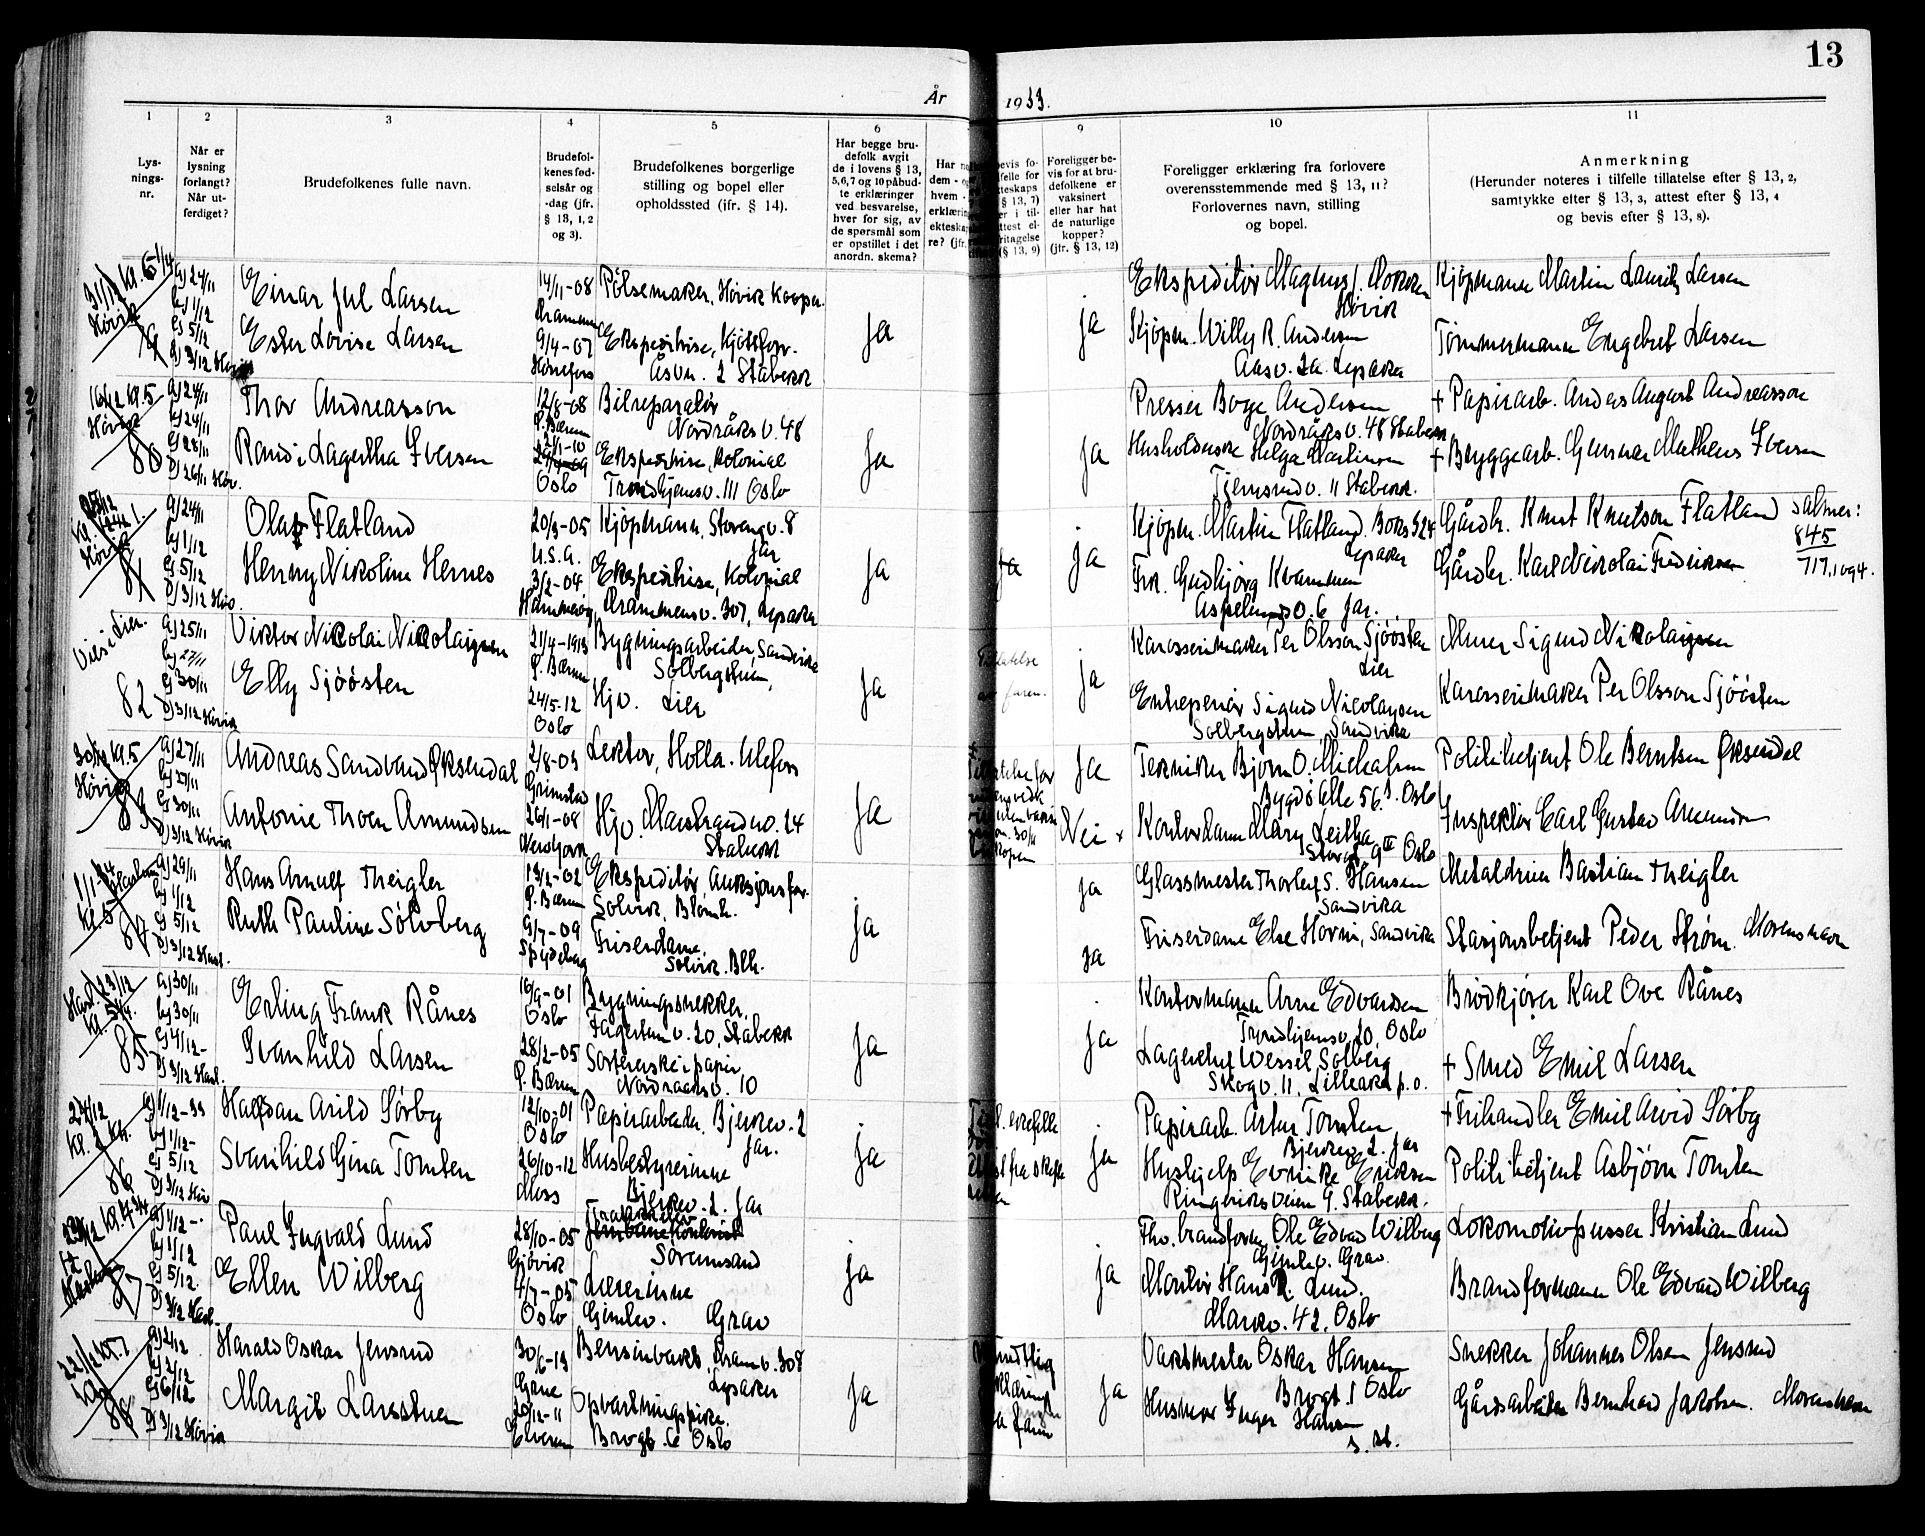 13
År 1933.
1 2 3 4 5 6 9 10 11
Lys-
nings-
nr.
Når er
lysning
forlangt?
Når ut-
ferdiget?
Brudefolkenes fulle navn.
Brudefol-
kenes fød-
selsår og
-dag (jfr.
§ 13, 1, 2
og 3).
Brudefolkenes borgerlige
stilling og bopel eller
opholdssted (ifr. § 14).
Har begge bru-
defolk avgit
de i lovens § 13,
5,6,7 og 10 påbud-
te erklæringer
ved besvarelse,
hver for sig, av
de spørsmål som
er opstillet i det
anordn. skema?
Foreligger be-
vis for at bru-
defolkene er
vaksinert
eller har hat
de naturlige
kopper?
(jfr. § 13, 12)
Foreligger erklæring fra forlovere
overensstemmende med § 13, 11?
Forlovernes navn, stilling
og bopel.
Anmerkning
(Herunder noteres i tilfelle tillatelse efter § 13, 2,
samtykke efter § 13, 3, attest efter § 13, 4
og bevis efter § 13, 8).
Høvik
79
a) 24/11
b) 1/12
c) 5/12
d) 3/12 Høvik
Einar Jul Larsen
Ester Lovise Larsen
14/11-08
Drammen
9/4-07
Hønefoss
Pølsemaker, Høvik Kooper.
Ekspeditrise, Kjøttforr.
Åsvn. 2 Stabekk
Ja
ja
Ekspeditør Magnus J.
Høvik
Kjøpm. Willy R. Andersen
Aasv. 2a. Lysaker
Kjøpmann Martin Laurits Larsen
Tømmermann Engebret Larsen
16/12 kl. 5
Høvik
80
a) 24/11
b) 24/11
c) 28/11
d) 26/11 Høv.
Thor Andreasson
Randi Lagertha Iversen
12/8-08
Ø. Bærum
Oslo
Bilreparatør
Nordråks v. 48
Ekspeditrise, Kolonial
Trondhjemsv. 111 Oslo
Ja
ja
Presser Boye Andersen
Nordråks v. 48 Stabekk
Husholderske Helga Martinsen
Tjernsrud v. 11 Stabekk.
+ Papirarb. Anders August Andreasson
+ Bryggearb. Gunnar Matheus Iversen
Høvik
81
a) 24/11
b) 1/12
c) 5/12
d) 3/12 Høv.
Olaf Flatland
Henny Nikoline Hernes
20/3-05
U.S.A.
3/2-04
Kjøpmann, Storengv. 8
Jar
Ekspeditrise, Kolonial
Drammensv. 307, Lysaker
Ja
Ja
ja
Kjøpm. Martin Flatland. Boks 524
Lysaker
Frk. Gudbjørg Kvammen
Aspelund O. 6 Jar.
Gårdbr. Knut Knutson Flatland
Gårdbr. Karl Nikolai Fredriksen
Salmer:
845
717. 1 og 4.
Vies i Lier.
82
a) 25/11
b) 27/11
c) 30/11
d) 3/12 Høvik
Viktor Nikolai Nikolaysen
Elly Sjøøsten
21/4-1913
Ø. Bærum
24/5-12
Oslo
Bygningsarbeider, Sandvika
Solbergstuen,
Hjv. Lier
Ja
ja
Karosserimaker Per Olsson Sjöösten
Lier
Entreprenør Sigurd Nicolaysen
Solbergstuen Sandvika
Murer Sigurd Nikolaysen
Karosserimaker Per Olsson Sjöösten
kl. 5
Høvik
83
a) 27/11
b) 27/11
c) 30/11
d) 3/12 Høvik
Andreas Sandvand Øksendal
Antonie Thoen Amundsen
2/8-03
Grimstad
26/11-08
Lektor, Holla. Ulefoss
Hjv. Marstrand v. 24
Stabekk
Ja
Ja
Nei +
Tekniker Bjørn O. Michalsen
Bygdø Alle 56 Oslo
Kontordame Mary Leitha
Storgt. 9 III Oslo
Politibetjent Ole Berntsen Øksendal
Inspektør Carl Gustav Amundsen
1/1-34 Haslum
kl. 5
84
a) 29/11
b) 1/12
c) 5/12
d) 3/12 Hasl.
Hans Arnulf Theigler
Ruth Pauline Sølvberg
13/2-02
Ø. Bærum
9/7-09
Spydeberg
Ekspeditør, Auksjonsfor.
Solvik, Blomh.
Friserdame,
Solvik. Blh.
ja
ja
ja
Glassmester Thorleif S. Hansen
Sandvika
Friserdame Else Horm, Sandvika
Metaldreier Bastian Theigler
Stasjonsbetjent Peder Strøm. Morens navn
Hasl. 23/12
85
a) 30/11
b) 30/11
c) 4/12-
d) 3/12 Hasl.
Erling Frank Rånes
Svanhild Larsen
16/9-01
Oslo
28/2-05
Ø. Bærum
Bygningssnekker,
Fagertun v. 20, Stabekk
Sortererske i papir
Nordraaks v. 10
Ja
ja
Kontormann Arne Edvardsen
Trondhjemsv. 20, Oslo
Lagerchef Wessel Solberg
Skogv. 11, Lilleaker p.o.
Brødkjører Karl Ove Rånes
+ Smed Emil Larsen
24/12
86
a) 1/12-33
b) 1/12-
c) 5/12
d) 3/12 Høv
Halfdan Arild Sørby
Svanhild Gina Tomten
12/10-01
Oslo
26/10-12
Moss
Papirarbeider, Bjerkev. 2
Jar.
Husbestyrerinne
Bjerkev. 2. Jar
ja
ja
Papirarb. Artur Tomten
Bjerkev. 2. Jar
Hushjelp Evrikke Eriksen
Ringeriksveien 9. Stabekk.
+ Frihandler Emil Arvid Sørby
Politibetjent Asbjørn Tomten
87
a) 1/12-
b) 1/12
c) 5/12.
d) 3/12 Hasl.
Paul Ingvald Lund
Ellen Wilberg
28/10-05
Gjøvik
4/7-05
Oslo
Sørumsand
Lærerinne
Gjimlev. Grav
ja
ja
Fhv. brandform. Ole Edvard Wilberg
Gjimlev. Grav
Montør Hans R. Lund.
Markv. 42, Oslo
Lokomotivpusser Kristian Lund
Brandformann Ole Edvard Wilberg
88
a) 2/12
b) 2/12
c) 6/12
d) 3/12 Høvik
Harald Oskar Jensrud
Margit Larsstuen
30/6-13
Grue
20/12-11
Elverum
Bensinvakt, Dramv. 308
Lysaker
Opvartningspike.
Brogt. 6 Oslo
ja
ja
Vaktmester Oskar Hansen
Brogt. 1 Oslo
Husmor Inger Hansen
s. st.
Snekker Johannes Olsen Jensrud
Gårdsarbeider Bernhard Jakobsen. Morens navn